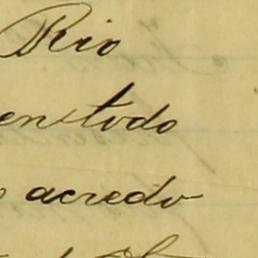 Rio
enstodo
acredo